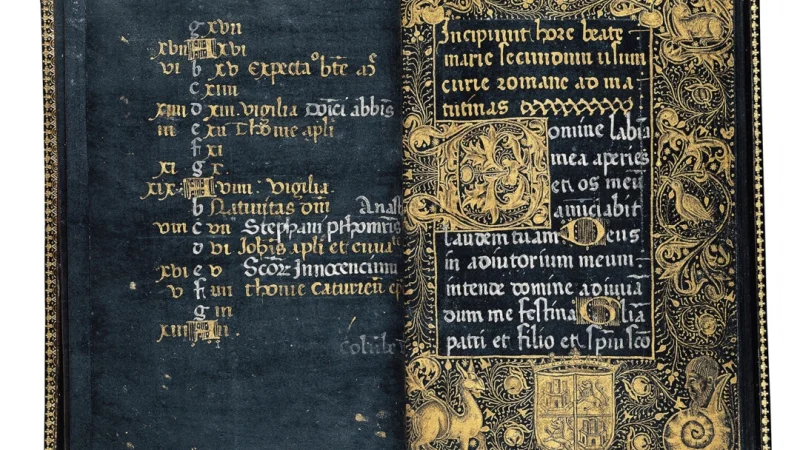 g xvii
xvii A xvi
vi b xv Expectaº bte mº
c xiiii
xiiii d xiii. vigilia Doīci abbis
iii e xii Thome apli
f xi
xi g x.
xix A viiii. vigilia.
b Natuitas dni
viii c viii Stephani
d vi Iohis apli et
xvi e v Scõr Innocencium
v f iiii thome
g iii
xiii A ii.
Incipiunt hore beate
marie secundum usum
curie romane ad ma
tutinas
Domine labia
mea aperies
et os meū
anūciabit
laudem tuam Deus
in adiutorium meum
intende domine adiuuā
dum me festina Gliā
patri et filio et spirisco